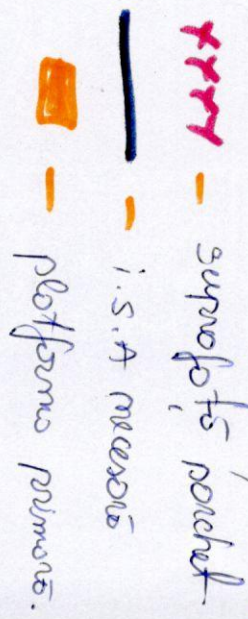 - suprafață parchet
- i.s.A necesară
- platforma primară.